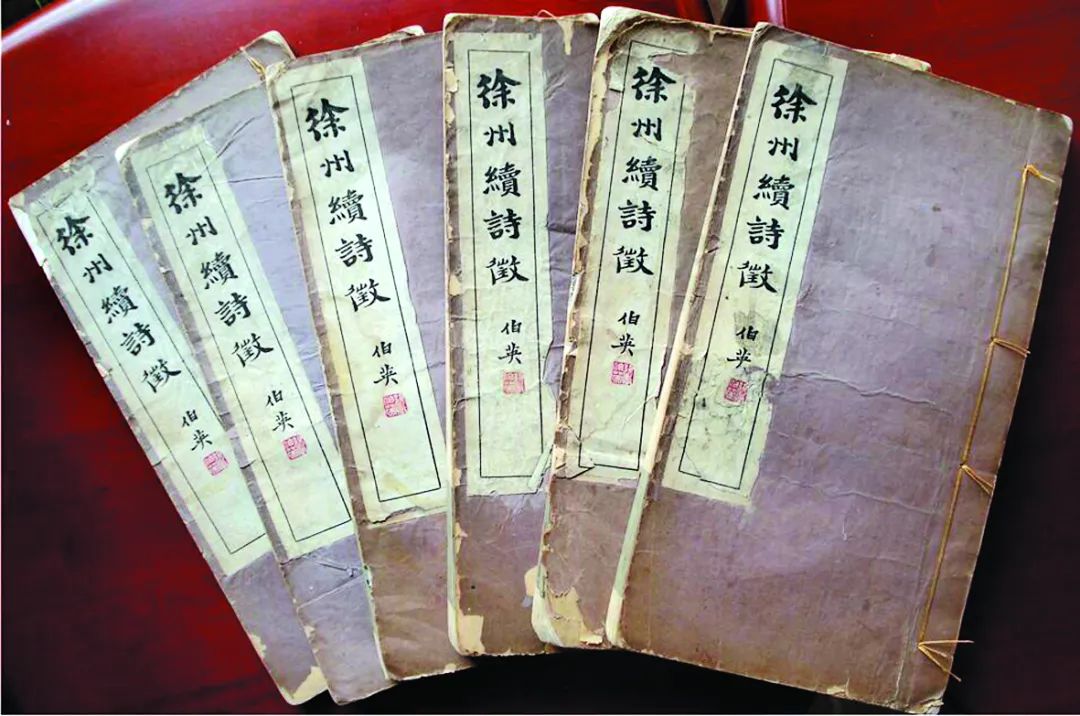 徐州續詩徵
伯英
徐州續詩徵
伯英
徐州續詩徵
伯英
徐州續詩徵
伯英
徐州續詩徵
伯英
徐州續詩徵
伯英